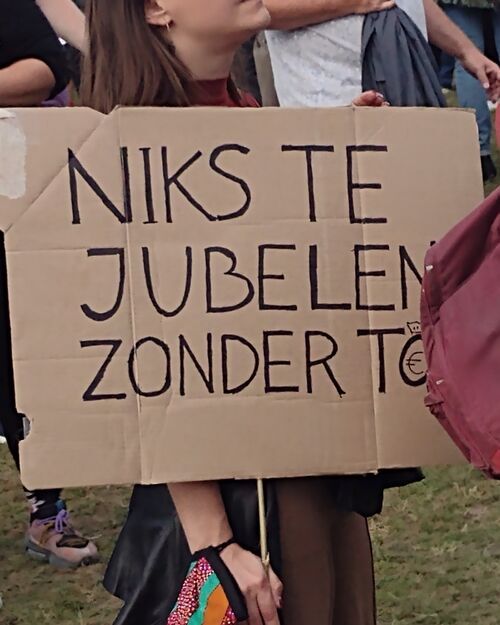 NIKS TE
JUBELEN
ZONDER